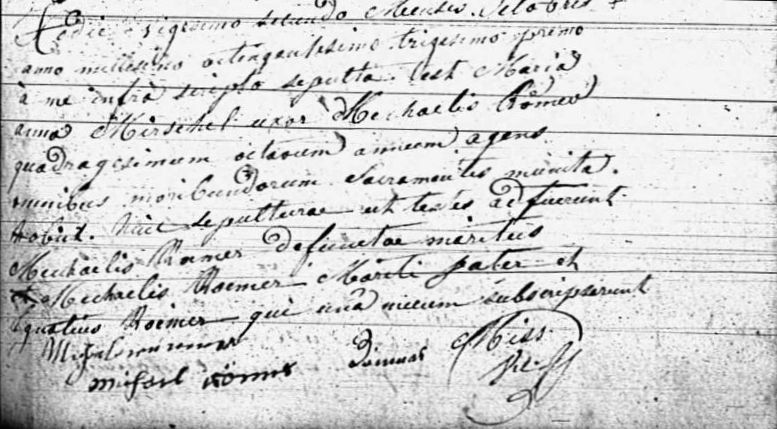 Hodie vigesimo secundo Mensis Octobris
anno millesimo octingentesimo trigesimo primo
à me infrà scripto sepulta est Maria
anna Hirschel uxor Mechaelis Römer
quadragesimum octavum annum agens
omnibus moribundorum Sacramentis munita.
obiit. huic sepulturae ut testes adfuerunt
Mechaelis Roemer defunctae maritus
et Mechaelis Roemer Mariti pater et
Ignatius Roemer qui unà mecum subscripserunt
Miss
michael römer